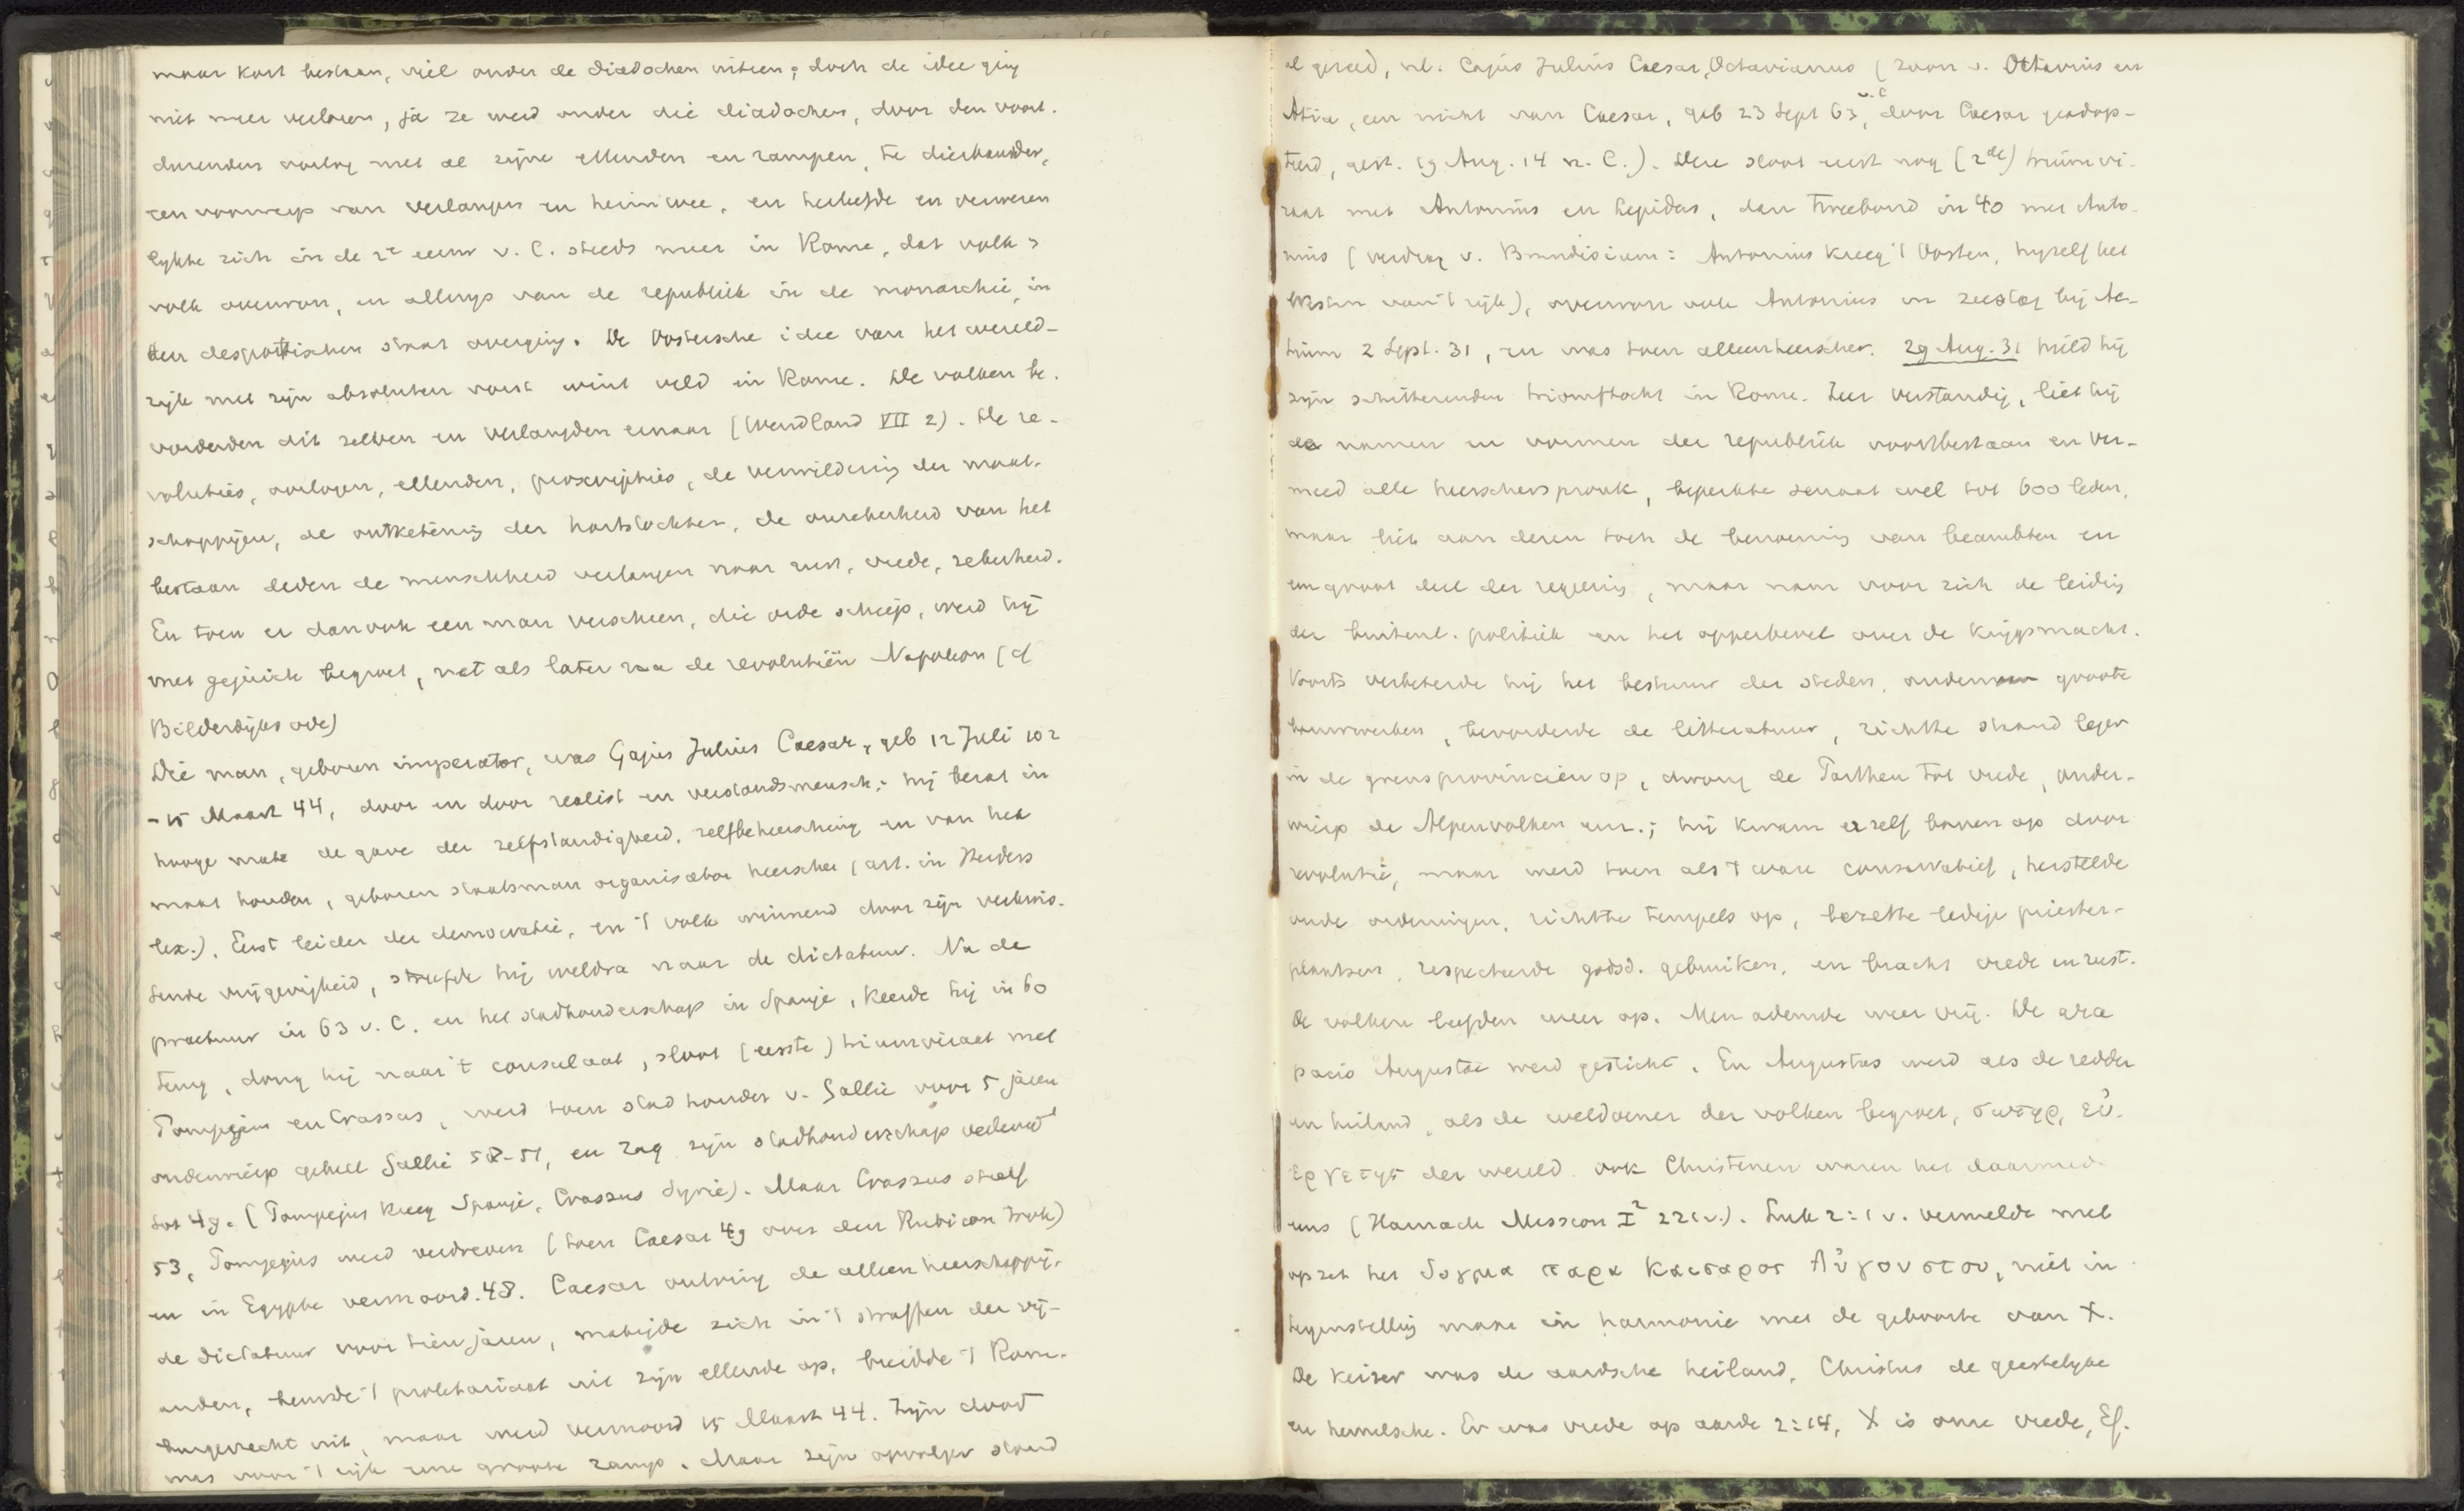 maar kort bestaan, viel onder de diadochen uiteen; doch de idee ging
niet meer verloren, ja ze werd onder die diadochen, door den voort-
durenden oorlog met al zijne ellenden en rampen, te dierbaarder,
een voorwerp van verlangen en heimwee, en herleefde en verwezen
lijkte zich in de 2e eeuw v. C. steeds meer in Rome, dat volk &
volk overwon, en allengs van de republiek in de monarchie, in
den despotischen staat overging. De Oostersche idee van het wereld-
rijk met zijn absoluten vorst wint veld in Rome. De volken be-
vorderden dit zelven en verlangden ernaar (Wendland VII 2). De re-
voluties, oorlogen, ellenden, proscripties, de verwildering der maat-
schappijen, de ontketening der hartstochten, de onzekerheid van het
bestaan deden de menschheid verlangen naar rust, vrede, zekerheid.
En toen er dan ook een man verscheen, die orde schiep, werd hij
met gejuich begroet, net als later na de revolutiën Napoleon (cf
Bilderdijks ode)
Die man, geboren imperator, was Gajus Julius Caesar, geb 12 Juli 102
- 15 Maart 44, door en door realist en verstandsmensch; hij bezat in
hooge mate de gave der zelfstandigheid, zelfbeheersching en van het
maat houden, geboren staatsman organisator heerscher (art. in Herders
lex.). Eerst leider der democratie, en 't volk winnend door zijn verkwis-
tende vrijgevigheid, streefde hij weldra naar de dictatuur. Na de
praetuur in 63 v. C. en het stadhouderschap in Spanje, keerde hij in 60
terug, dong hij naar 't consulaat, sloot (eerste) triumviraat met
Pompejus en Crassus, werd toen stadhouder v. Gallië voor 5 jaren
onderwierp geheel Gallië 58-51, en zag zijn stadhouderschap verlengd
tot 49. (Pompejus kreeg Spanje, Crassus Syrië). Maar Crassus stierf
53, Pompejus werd verdreven (toen Caesar 49 over den Rubicon trok)
en in Egypte vermoord. 48. Caesar ontving de alleenheerschappij,
de dictatuur voor tien jaren, matigde zich in 't straffen der vij-
anden, beurde 't proletariaat uit zijn ellende op, breidde 't Rom.
burgerrecht uit, maar werd vermoord 15 Maart 44. Zijn dood
was voor 't rijk eene groote ramp. Maar zijn opvolger stond
al gereed, nl. Cajus Julius Caesar, Octavianus (zoon v. Octavius en
Atia, een nicht van Caesar, geb 23 Sept 63 v. C, door Caesar geadop-
teerd, gest. 19 Aug. 14 n. C.). Deze sloot eerst nog (2de) triumvi-
raat met Antonius en Lepidus, dan tweebond in 40 met Anto-
nius (verdrag v. Brundisium: Antonius kreeg 't Oosten, hijzelf het
Westen van 't rijk), overwon ook Antonius in zeeslag bij Ac-
tium 2 Sept. 31, en was toen alleenheerscher. 29 Aug. 31 hield hij
zijn schitterenden triomftocht in Rome. Zeer verstandig, liet hij
de namen en vormen der republiek voortbestaan en ver-
meed alle heerscherspronk, beperkte senaat wel tot 600 leden,
maar liet aan dezen toch de benoeming van beambten en
een groot deel der regeering, maar nam voor zich de leiding
der buitenl. politiek en het opperbevel over de krijgsmacht.
Voorts verbeterde hij het bestuur der steden, ondernam groote
bouwwerken, bevorderde de litteratuur, richtte stand leger
in de grensprovinciën op, dwong de Parthen tot vrede, onder-
wierp de Alpenvolken enz.; hij kwam er zelf boven op door
revolutie, maar werd toen als 't ware conservatief, herstelde
oude ordeningen, richtte tempels op, bezette ledige priester-
plaatsen, respecteerde godsd. gebruiken, en bracht vrede en rust.
De volken leefden weer op. Men ademde weer vrij. De ara
pacis Augustae werd gesticht. En Augustus werd als de redder
en heiland, als de weldoener der volken begroet, σωτηρ, εὐ-
εργετης der wereld. ook Christenen waren het daarmede
eens (Harnack Mission I² 221 v.). Luk 2:1 v. vermelde met
opzet het δογμα παρα Καισαρος Αὐγουστου, niet in
tegenstelling maar in harmonie met de geboorte van X.
De keizer was de aardsche heiland, Christus de geestelijke
en hemelsche. Er was vrede op aarde 2:14, X is onze vrede, Ef.